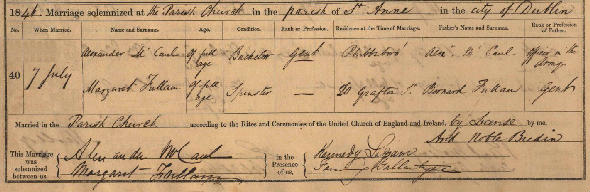 1846. Marriage solemnized at the Parish Church in the parish of St. Anne in the city of Dublin
No. When Married. Name and Surname. Age. Condition. Rank or Profession. Residence at the Time of Marriage. Father's Name and Surname. Rank or Profession of Father.
40 7 July Alexander Mc Caul of full age Bachelor Gent Phibsboro' Alexr. Mc Caul officer in the Army
Margaret Fullam of full age Spinster — Grafton St. Bernard Gent
Married in the Parish Church according to the Rites and Ceremonies of the United Church of England and Ireland, by License by me,
Noble Bredin
This Marriage was solemnized between us, Alexander McCaul Margaret Fullam in the Presence of us, Kennedy